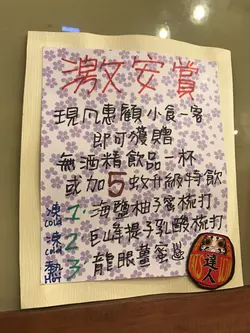 激安賞
現凡惠顧小食一客
即可獲贈
無酒精飲品一杯
或加5蚊升級特飲
凍 COLD 1. 海鹽柚子蜜梳打
凍 COLD 2. 巨峰提子乳酸梳打
熱 HOT 3. 龍眼薑蜜
達人